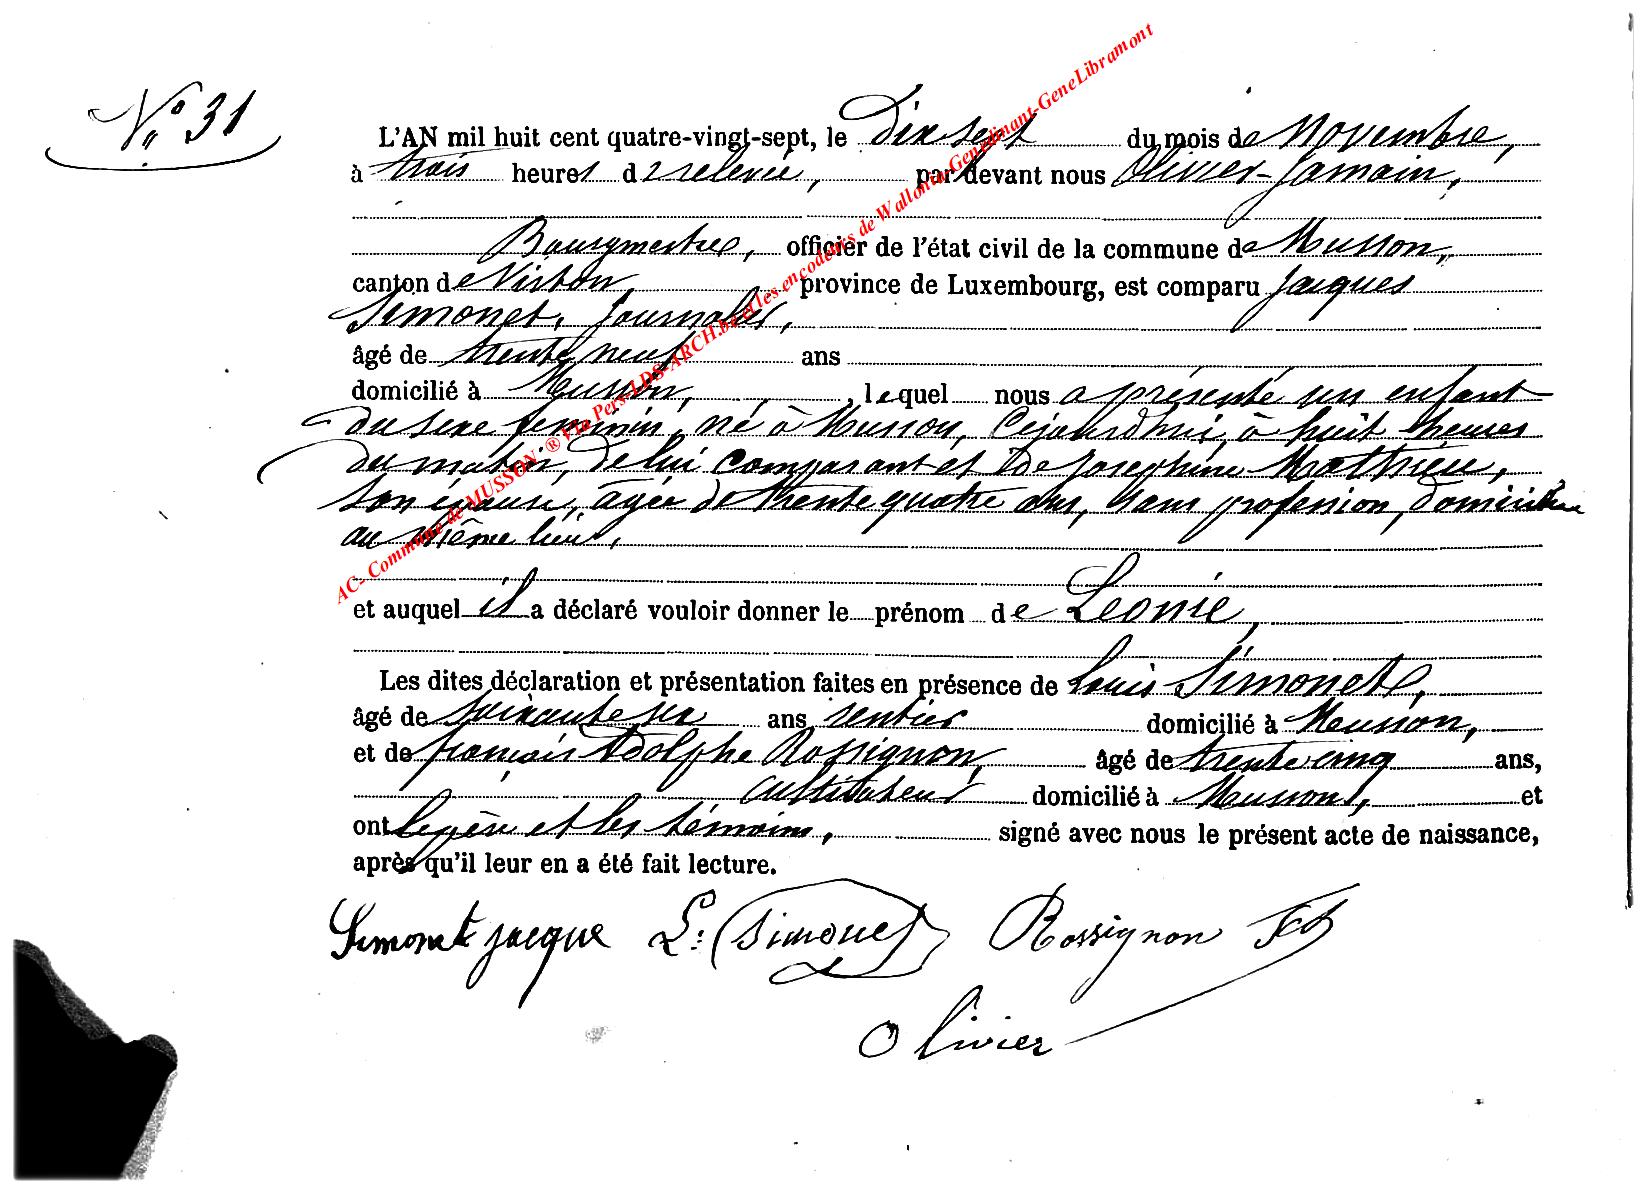 N° 31
L'AN mil huit cent quatre-vingt-sept, le Dix sept du mois de Novembre,
à trois heures de relevée, par devant nous Olivier-Jamain,
Bourgmestre, officier de l'état civil de la commune de Musson,
canton de Virton, province de Luxembourg, est comparu Jacques
Simonet, journalier,
âgé de trente neuf ans
domicilié à Musson, lequel nous a présenté un enfant
du sexe féminin, né à Musson, Cejourd'hui, à huit heures
du matin, de lui comparant et de Josephine Mathieu,
son épouse, âgée de trente quatre ans, sans profession, domiciliée
au même lieu,
et auquel il a déclaré vouloir donner le prénom de Léonie,
Les dites déclaration et présentation faites en présence de Louis Simonet,
âgé de soixante six ans rentier domicilié à Musson,
et de françois Adolphe Rossignon, âgé de trente cinq ans,
cultivateur domicilié à Musson, et
ont le père et les témoins, signé avec nous le présent acte de naissance,
après qu'il leur en a été fait lecture.
Simonet jacque L. Simonet Rossignon
Olivier
AC- Commune de MUSSON ® Via Pers-LDS-ARCH.be et les encodeurs de Wallonia-Genedinant-GeneLibramont